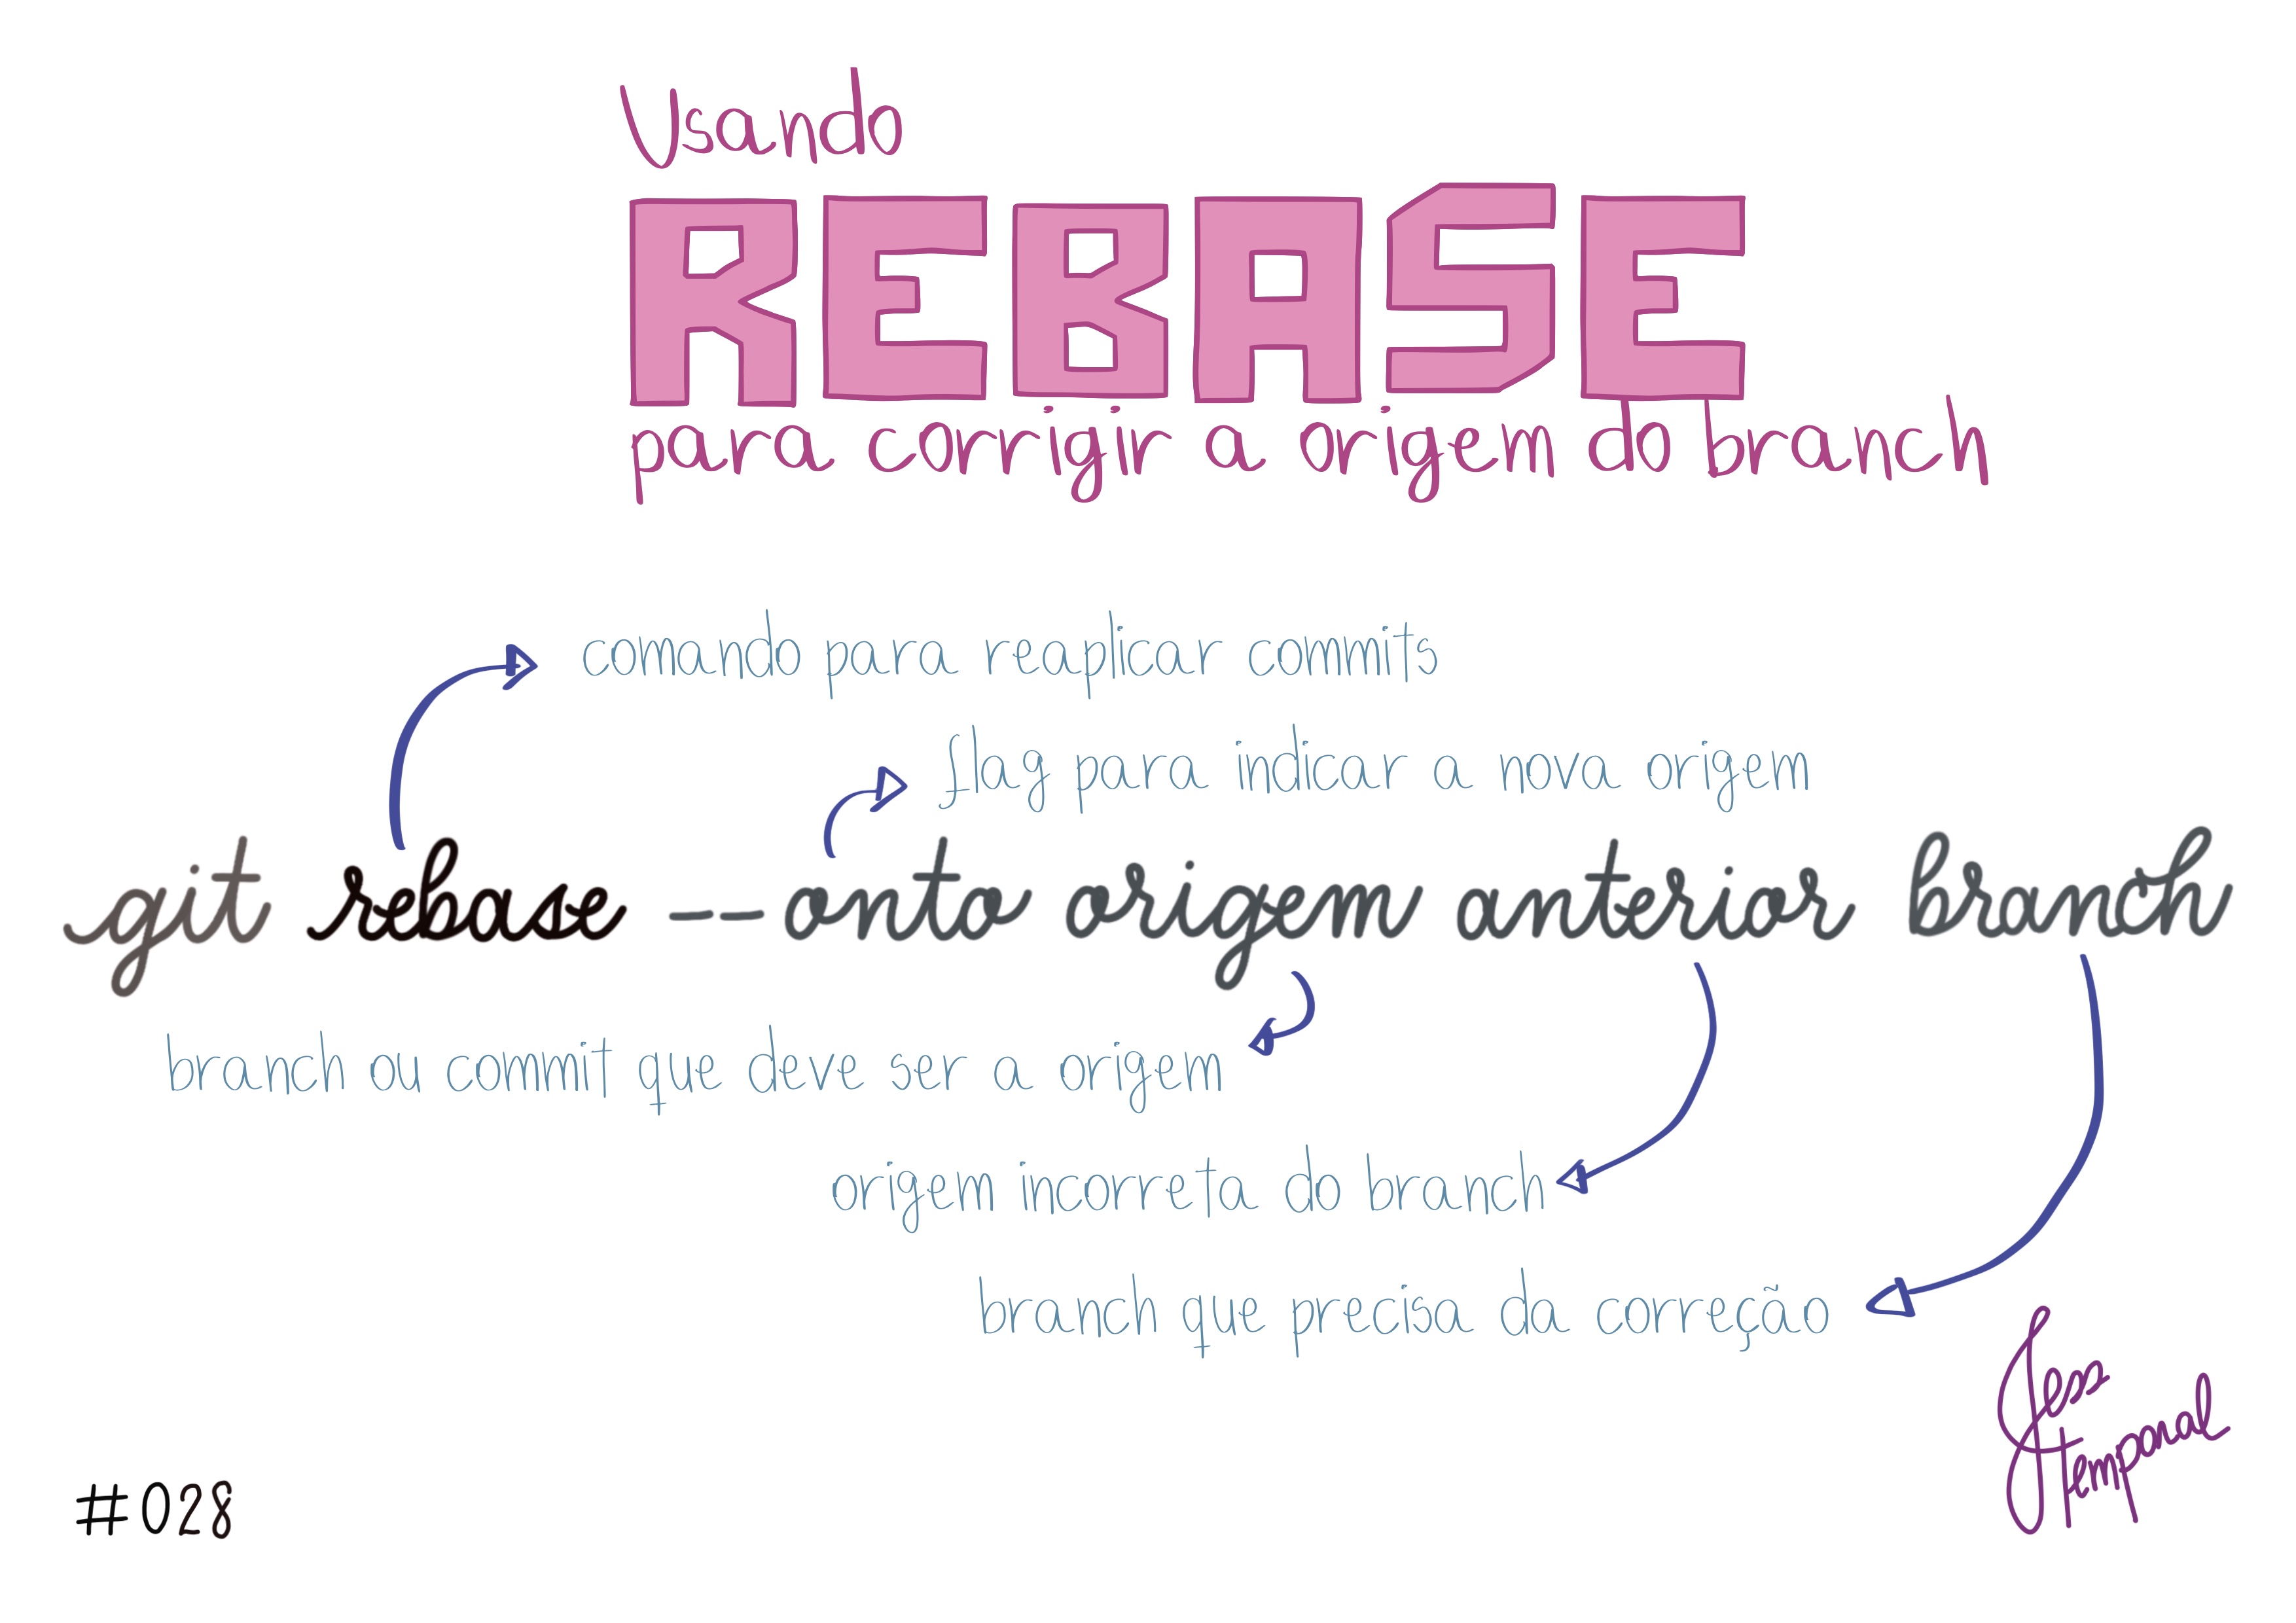 Usando
REBASE
para corrigir a origem do branch
comando para reaplicar commits
flag para indicar a nova origem
git rebase --onto origem anterior branch
branch ou commit que deve ser a origem
origem incorreta do branch
branch que precisa da correção
Jess
temporal
#028